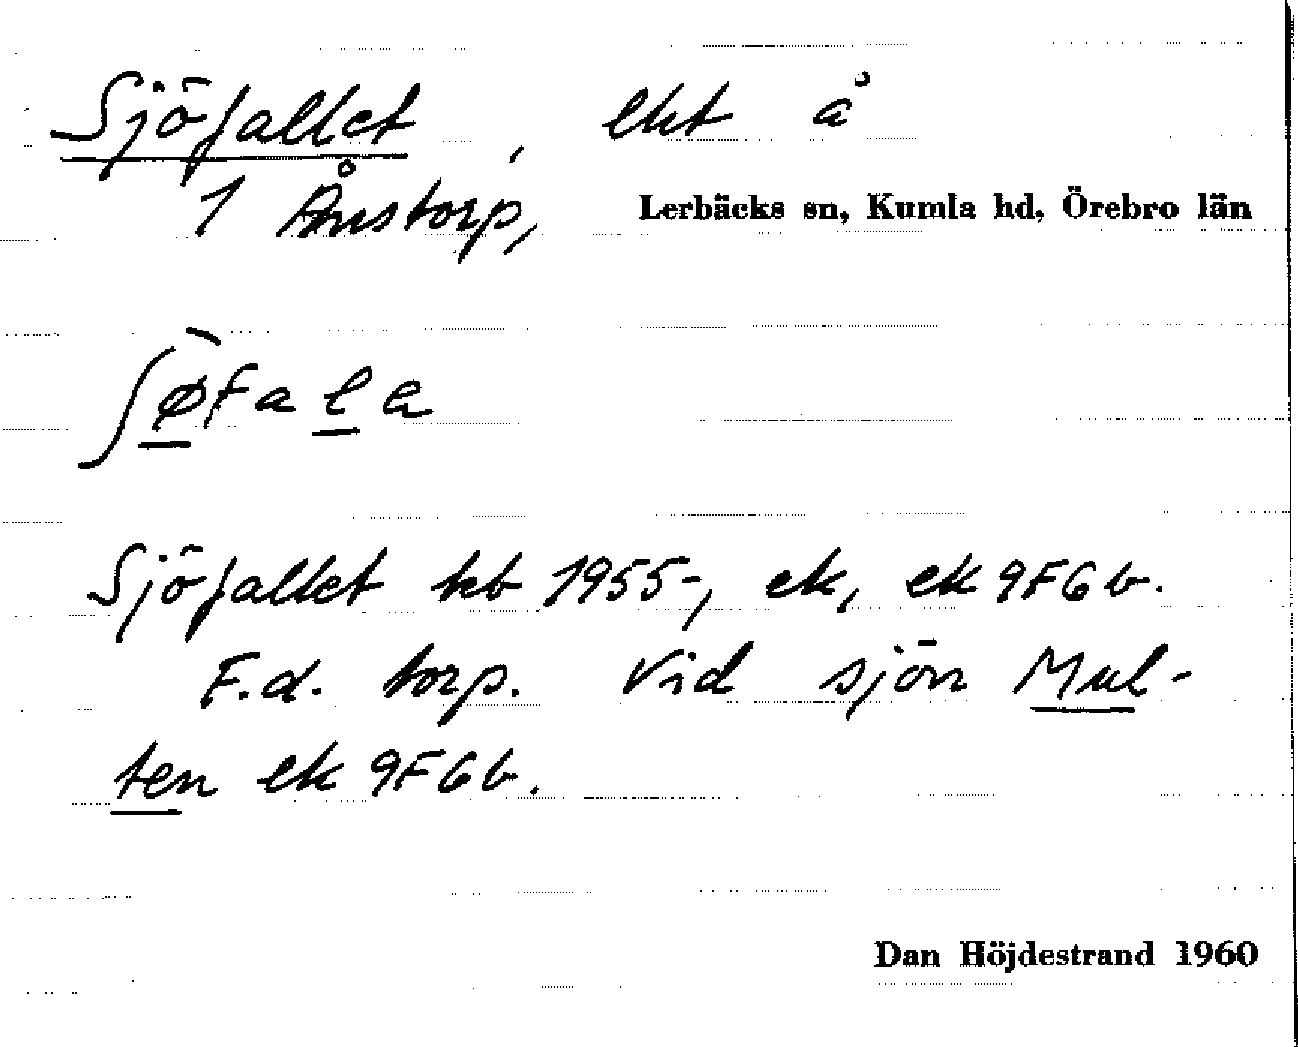 Sjöfallet, lht å
1 Ånstorp, Lerbäcks sn, Kumla hd, Örebro län
ʃø̀fala
Sjöfallet kb 1955-, ek, ek 9F6b.
F.d. torp. Vid sjön Mul-
ten ek 9F6b.
Dan Höjdestrand 1960